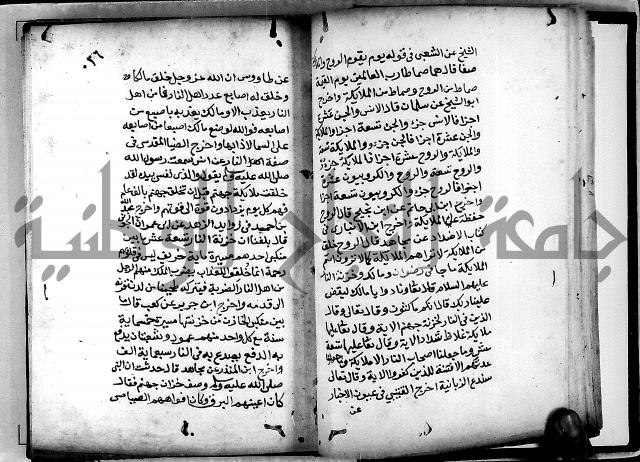 الشيخ عن الشعبي في قوله يوم يقوم الروح والملائكة
صفا قال هما صماطا رب العالمين يوم القيمة
صماط من الروح وصماط من الملايكة واخرج
ابو الشيخ عن سلمان قال الانس والجن عشرة
اجزا فالانس جزء والجن تسعة اجزا والملايكة
والجن عشرة اجزا فالجن جزء والملايكة تسعة
والملايكة والروح عشرة اجزا فالملايكة جزء
والروح تسعة والروح والكروبيون عشرة
اجزا فالروح جزء والكروبيون تسعة اجزا
واخرج ابن ابي حاتم عن ابن نجيح قال الروح
حفظة على الملايكة واخرج ابن الانباري في
كتاب الاضداد عن مجاهد قال الروح خلق
من الملايكة لا تراهم الملايكة كما لا ترون انتم
الملايكة ما جا في رضوان ومالك وخزنة النار
عليهم السلام قال تعالى ونادوا يا مالك ليقض
علينا ربك قال انكم ماكثون وقال تعالى وقال
الذين في النار لخزنة جهنم الاية وقال تعالى عليها
ملايكة غلاظ شداد الاية وقال تعالى عليها تسعة
عشر وما جعلنا اصحاب النار الا ملايكة وما جعلنا
عدتهم الا فتنة للذين كفروا الاية وقال تعالى
سندع الزبانية اخرج القتيبي في عيون الاخبار
عن
٠٢٦
عن طاووس ان الله عز وجل خلق مالكا
وخلق له اصابع عدد اهل النار فما من اهل
النار يعذب الا ومالك يعذبه باصبع من
اصابعه فوالله لو وضع مالك اصبعا من اصابعه
على السما لاذابها واخرج الضيا المقدسي في
صفة النار عن انس سمعت رسول الله
صلى الله عليه وسلم يقول والذي نفسي بيده لقد
خلقت ملايكة جهنم قبل ان تخلق جهنم بالف عام
فهم كل يوم يزدادون قوة الى قوتهم واخرج عبد الله
بن احمد في زوايد الزهد عن ابي عمران الجوني
قال بلغنا ان خزنة النار تسعة عشر ما بين
منكبي احدهم مسيرة ماية خريف ليس في قلوبهم
رحمة انما خلقوا للعذاب يضرب الملك منهم الرجل
من اهل النار الضربة فيتركه طحينا من لدن قرنه
الى قدمه واخرج ابن جرير عن كعب قال ما
بين منكبي الخازن من خزنتها مسيرة خمسماية
سنة مع كل واحد منهم عمود وشعبتان يدفع
به الدفع يصدع به في النار سبعماية الف
واخرج ابن المنذر عن مجاهد قال حدثت ان النبي
صلى الله عليه وسلم وصف خزان جهنم فقال
كان اعينهم البرق وكان افواههم الصياصي
جامعة النجاح الوطنية